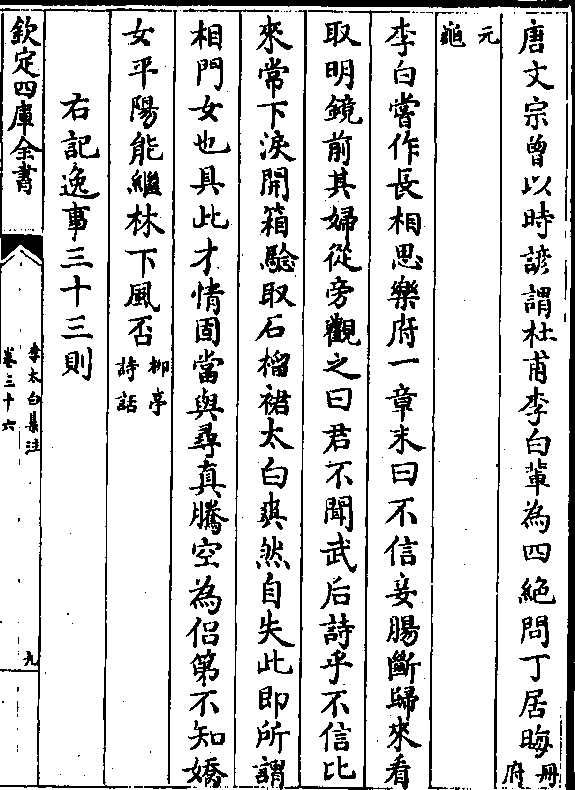 唐文宗曾以時諺謂杜甫李白軰為四絶問丁居晦冊府
元龜
李白嘗作長相思樂府一章末曰不信妾腸斷歸來看
取明鏡前其婦從旁觀之曰君不聞武后詩乎不信比
來常下淚開箱驗取石榴裙太白爽然自失此即所謂
相門女也具此才情固當與尋真騰空為侣第不知嬌
女平陽能繼林下風否柳亭詩話
右記逸事三十三則
欽定四庫全書
李太白集注
卷三十六
九